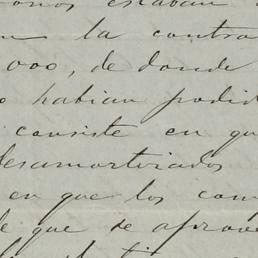 estaban
la contra
000, de donde
habian podid
consiste en qu
desamortizados
en que los com
e que se aprove